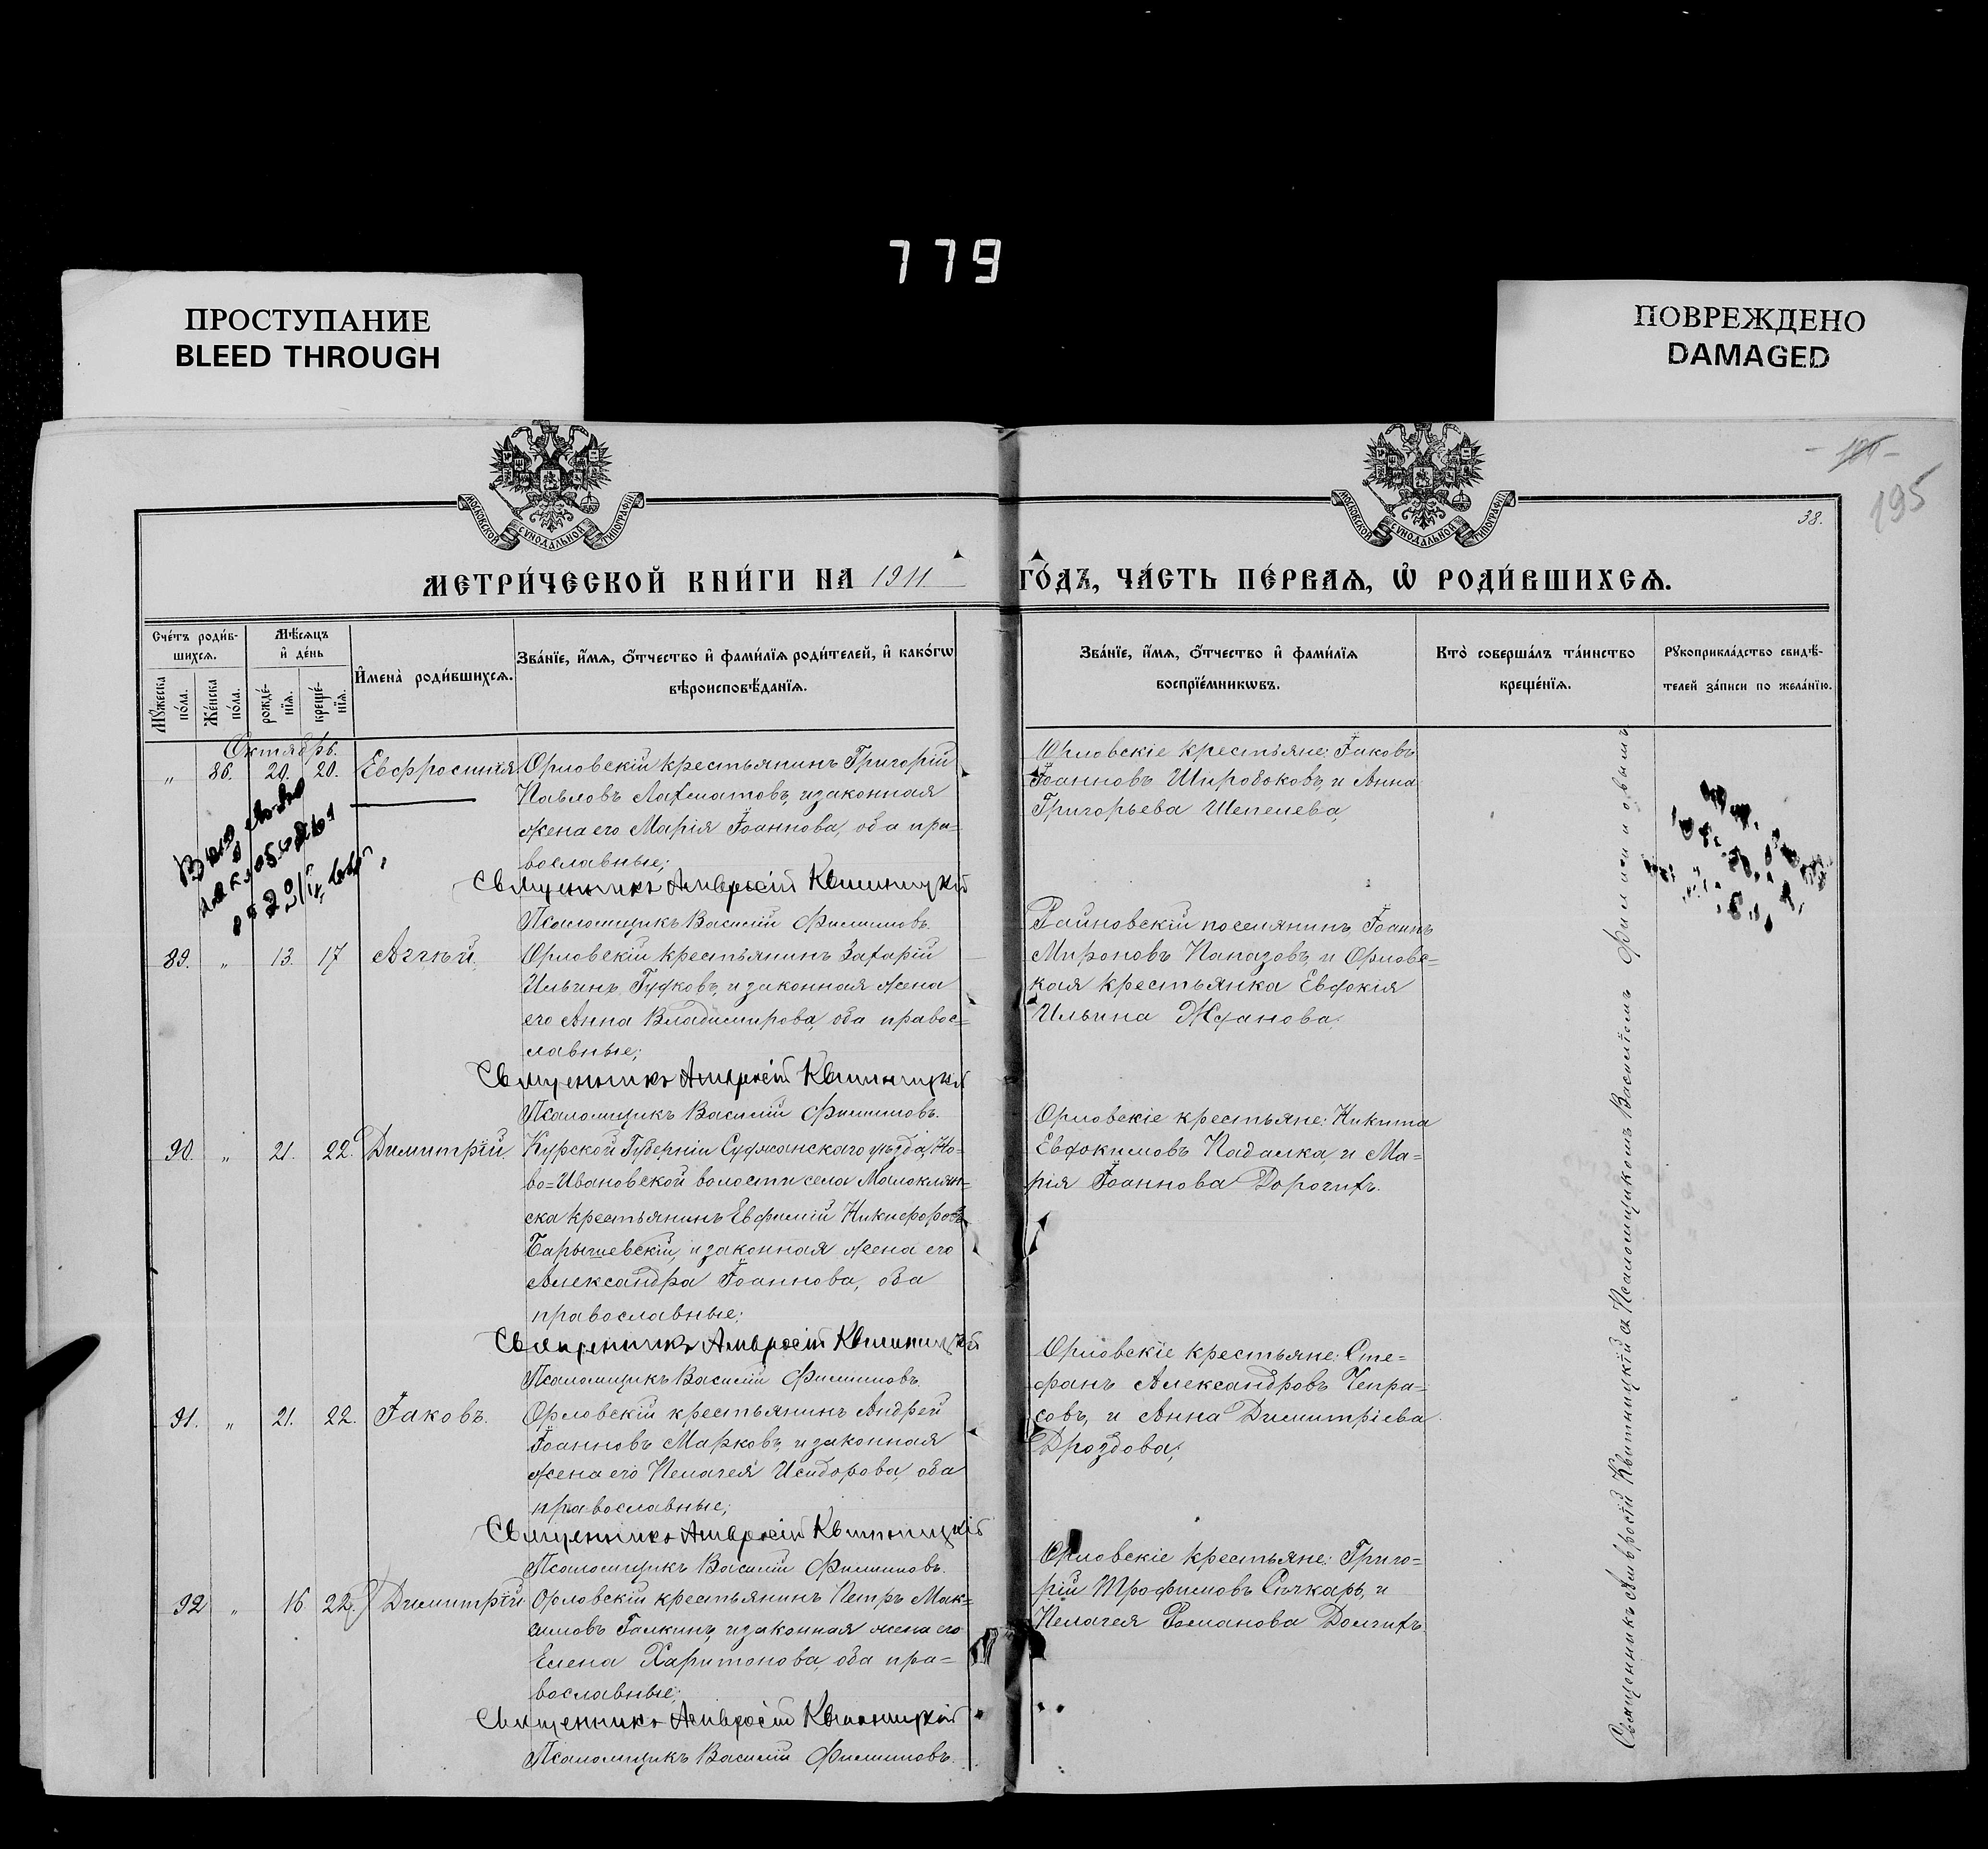 779
ПРОСТУПАНИЕ
BLEED THROUGH
ПОВРЕЖДЕНО
DAMAGED
195
38.
МОСКОВСКОЙ СѴНОДАЛЬНОЙ ТИПОГРАФІИ
МОСКОВСКОЙ СѴНОДАЛЬНОЙ ТИПОГРАФІИ
МЕТРИ́ЧЕСКОЙ КНИ́ГИ НА 1911 ГО́ДЪ, ЧА́СТЬ ПЕ́РВАѦ, Ѡ҆ РОДИ́ВШИХСѦ.
Счéтъ роди́в-
шихсѧ.
Мꙋ́жеска по́ла.
Же́нска по́ла.
Мѣ́сѧцъ
и҆ де́нь
рожде́-
нїѧ.
креще́-
нїѧ.
И҆мена̀ роди́вшихсѧ.
Зва́нїе, и҆́мѧ, ѻ҆́тчество и҆ фами́лїѧ роди́телей, и҆ како́гѡ
вѣроисповѣ́данїѧ.
Зва́нїе, и҆́мѧ, ѻ҆́тчество и҆ фами́лїѧ
воспрїе́мникѡвъ.
Кто̀ соверша́лъ та́инство
креще́нїѧ.
Рꙋкоприкла́дство свидѣ́-
телей за́писи по жела́нїю.
Октябрь.
„ 86. 20. 20. Евфросинія
Орловскій крестьянинъ Григорій
Павловъ Лахматовъ, и законная
жена его Марія Іоаннова, оба пра-
вославные;
Священникъ Амвросій Квитницкій
Псаломщикъ Василій Филиповъ.
Орловскіе крестьяне: Іаковъ
Іоанновъ Широбоковъ, и Анна
Григорьева Шепелева,
89. „ 13. 17 Аггѣй.
Орловскій крестьянинъ Захарій
Ильинъ Гудковъ, и законная жена
его Анна Владимирова, оба правос=
лавные;
Священникъ Амвросій Квитницкій
Псаломщикъ Василій Филиповъ.
поселянинъ Іоаннъ
Мироновъ Папазовъ, и Орловс=
кая крестьянка Евдокія
Ильина Жданова.
90. „ 21. 22. Димитрій.
Курской Губерніи Суджанскаго уѣзда, Но-
во=Ивановской волости села
ска крестьянинъ Евфимій Никифоровъ
Барышевскій, и законная жена его
Александра Іоаннова, оба
православные;
Священникъ Амвросій Квитницкій
Псаломщикъ Василій Филиповъ.
Орловскіе крестьяне: Никита
Евдокимовъ Падалка, и Ма=
рія Іоаннова Дорогихъ.
91. „ 21. 22. Іаковъ.
Орловскій крестьянинъ Андрей
Іоанновъ Марковъ, и законная
жена его Пелагея Исидорова, оба
православные;
Священникъ Амвросій Квитницкій
Псаломщикъ Василій Филиповъ.
Орловскіе крестьяне: Сте=
фанъ Александровъ Чепра=
совъ, и Анна Димитріева
Дроздова;
92 „ 16 22. Димитрій
Орловскій крестьянинъ Петръ Мак=
симовъ Галкинъ, и законная жена его
Елена Харитонова, оба пра=
вославные;
Священникъ Амвросій Квитницкій
Псаломщикъ Василій Филиповъ.
Орловскіе крестьяне: Григо=
рій Трофимовъ Сѣчкарь, и
Пелагея Романова Долгихъ.
Священникъ Амвросій Квитницкій съ Псаломщикомъ Василіемъ Филиповымъ